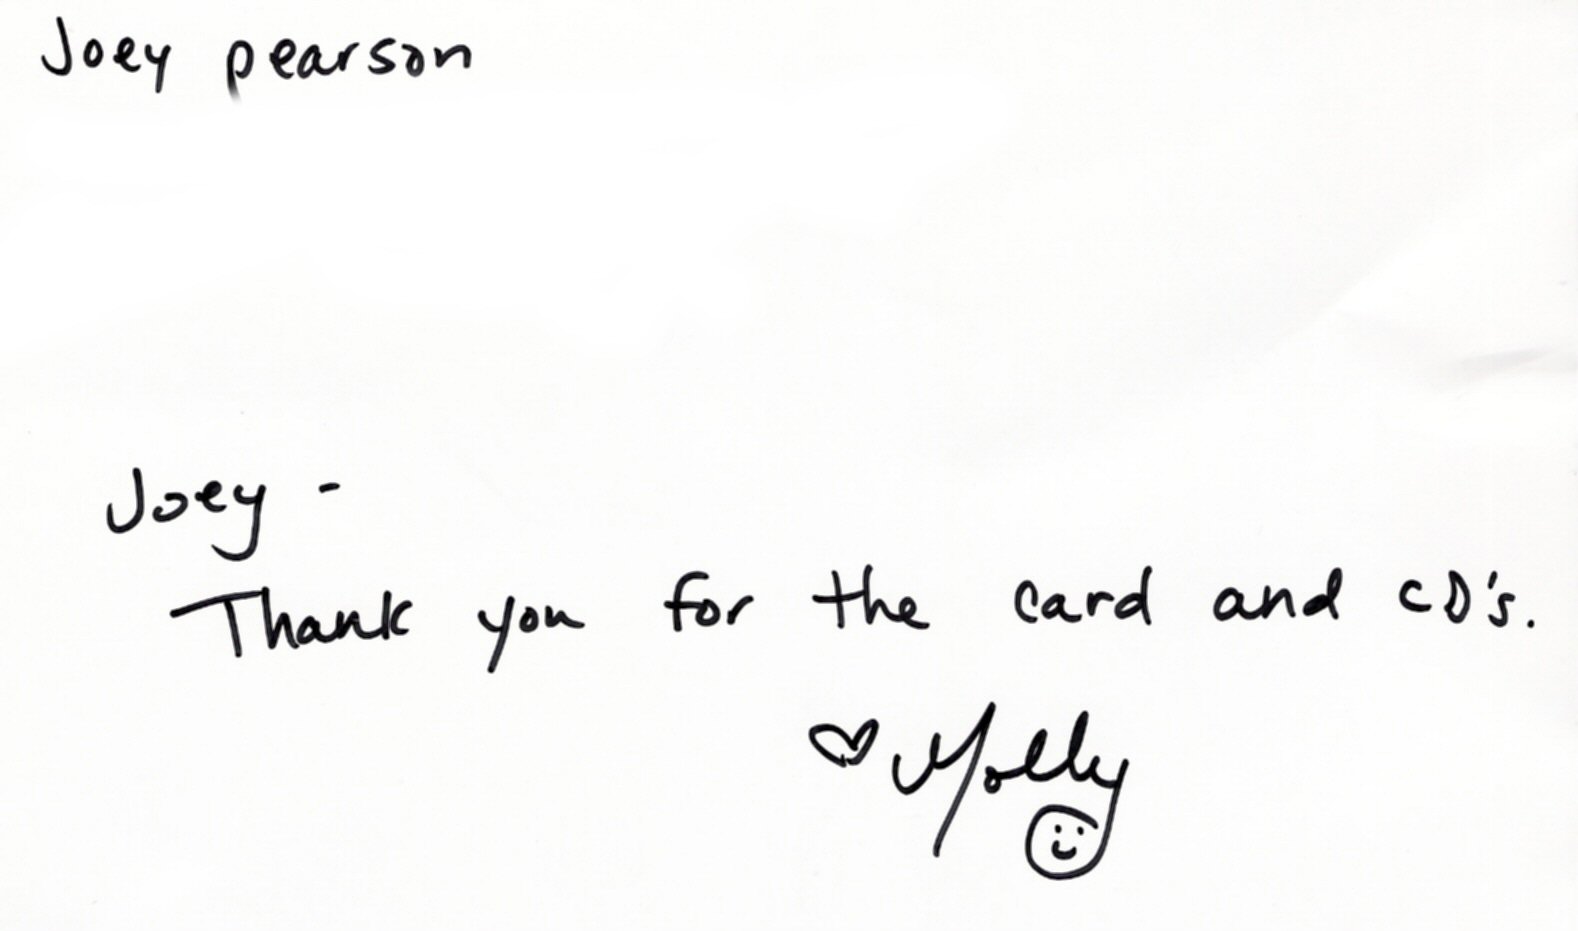 Joey pearson
Joey -
Thank you for the card and CD's.
♡ Molly